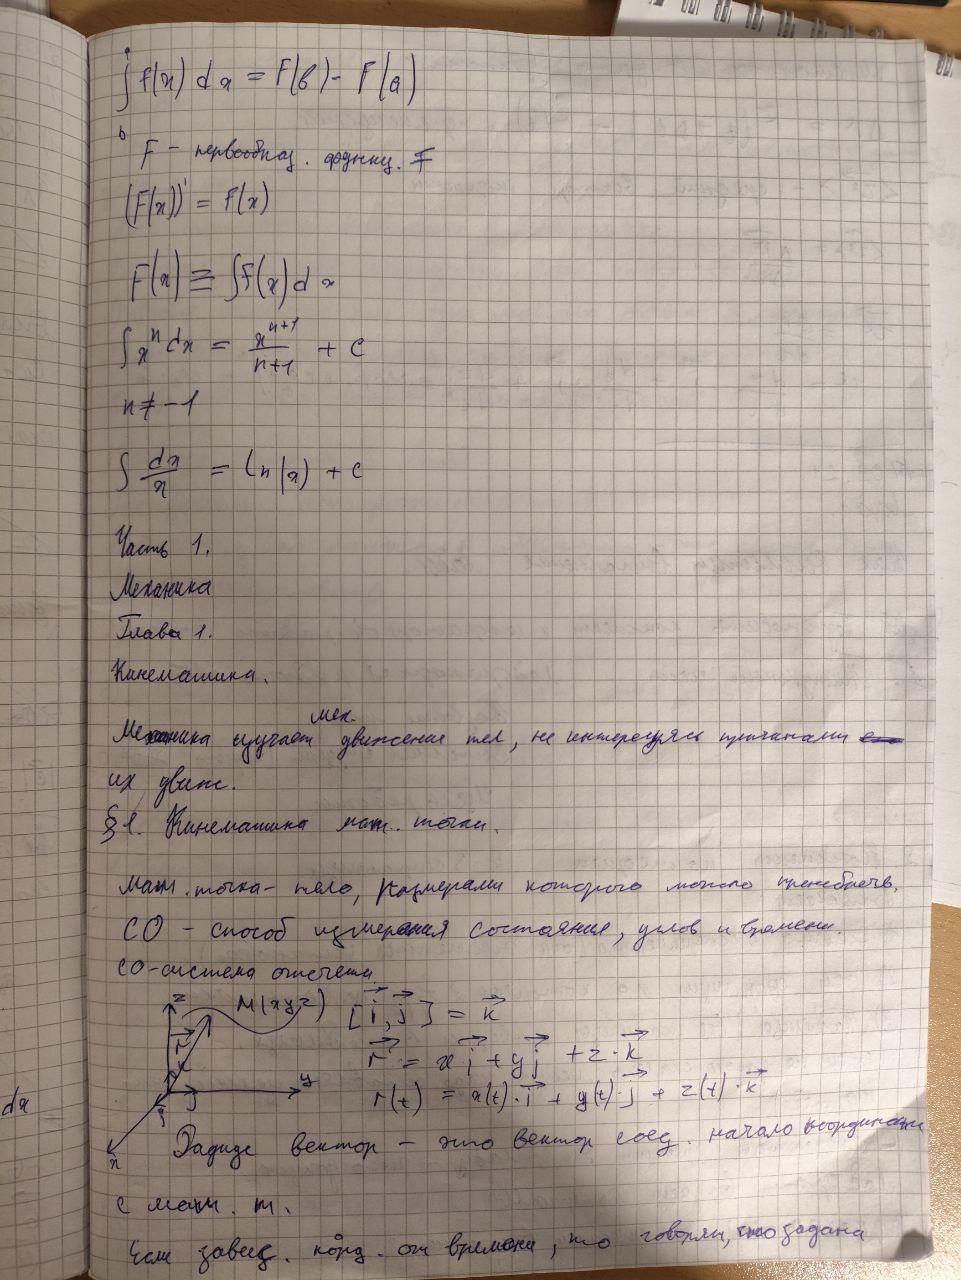 ∫ f(x) dx = F(b) - F(a)
b
F - первообраз. функц. F
(F(x))' = f(x)
F(x) ≡ ∫f(x) dx
∫ xⁿ dx = xⁿ⁺¹/(n+1) + C
n ≠ -1
∫ dx/x = ln|x| + C
Часть 1.
Механика
Глава 1.
Кинематика.
мех.
Механика изучает движение тел, не интересуясь причинами
их движ.
§1. Кинематика мат. точки.
Мат. точка - тело, размерами которого можно пренебречь.
СО - способ измерения состояния, углов и времени.
СО-система отсчета
z M(xyz) [i⃗, j⃗] = k⃗
r⃗ r⃗ = x i⃗ + y j⃗ + z·k⃗
y r(t) = x(t)·i⃗ + y(t)·j⃗ + z(t)·k⃗
dx
i j
x
Радиус вектор - это вектор соед. начало координат
с мат. т.
Если завис. коорд. от времени, то говорят, что задана